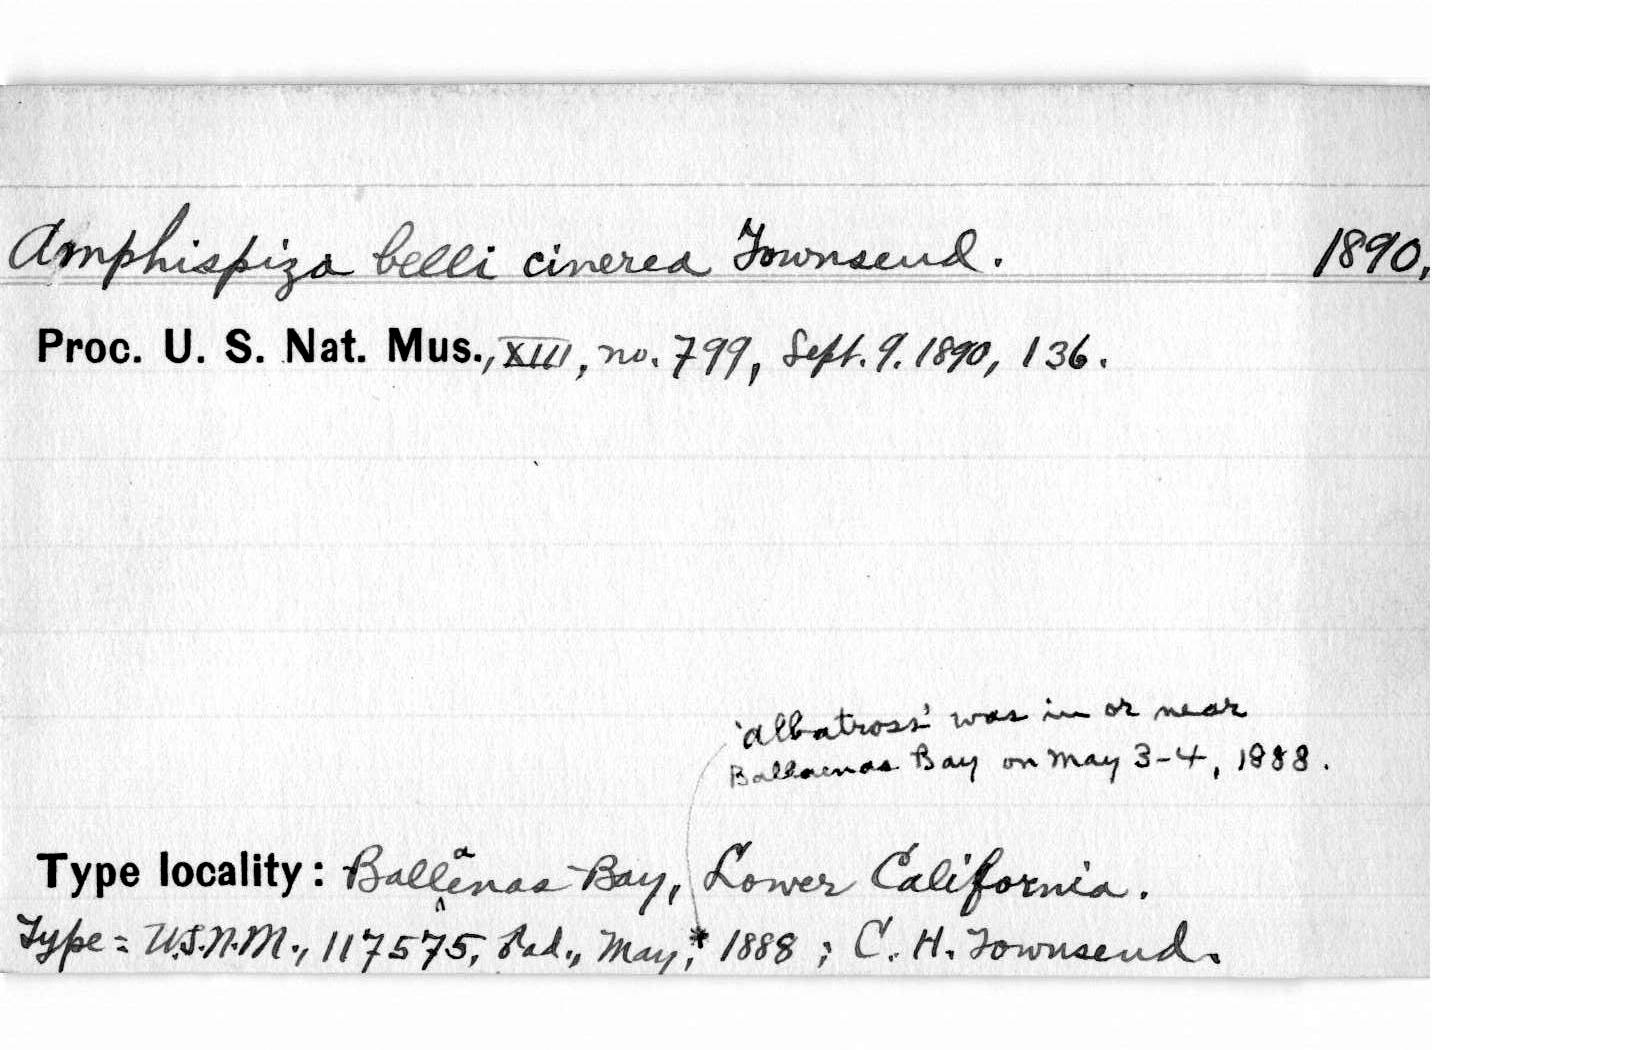 Amphispiza belli cinerea Townsend. 1890.
Proc. U. S. Nat. Mus., XIII, no. 799, Sept. 9. 1890, 136.
'Albatross' was in or near
Ballaenas Bay on May 3-4, 1888.
Type locality: Ballaenas Bay, Lower California.
Type = U.S.N.M., 117575, ad., May,* 1888; C. H. Townsend.